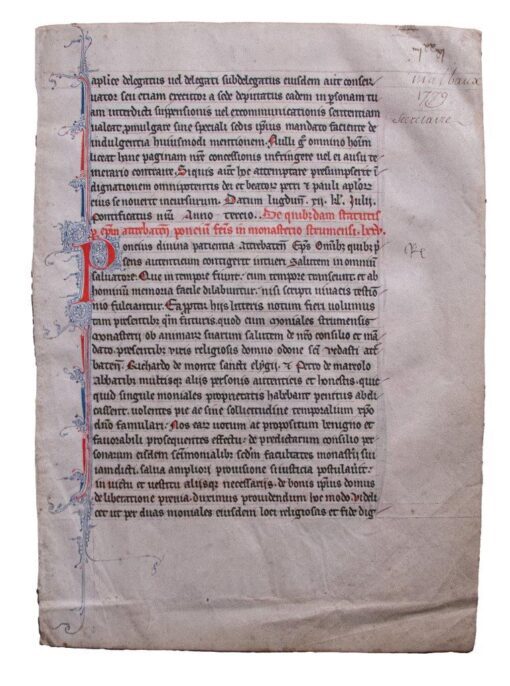 malbaux
1779
Secretaire
aplice delegatus uel delegati subdelegatus eiusdem aut conser
uator seu etiam executor a sede deputatus eadem in psonam tu
am interdicti suspensionis uel excommunicationis sententiam
ualeat pmulgare sine speciali sedis ipsius mandato faciente de
indulgentia huiusmodi mentionem. Nulli g omnino hom
liceat hanc paginam nre concessionis infringere uel ei ausu te
merario contraire. Siquis aut hoc attemptare presumpserit i
dignationem omnipotentis dei et beator petri & pauli aplor
eius se nouerit incursurum. Datum lugdun. xii. kl. Julii.
Pontificatus nri Anno tercio. De quibdam statutis
p epm attrebaten. poncium fcis in monasterio strumensi. lxxv.
Poncius diuina patientia attrebaten Eps Omnibz quibz p
sens autenticum contigerit intueri Salutem in omnium
saluatore. Que in tempore fiunt. cum tempore transeunt. et ab
hominum memoria facile dilabuntur. nisi scripti uiuacis testio
nio fulciantur. Ea ppter hiis litteris notum fieri uolumus
tam presentibz qm futuris. quod cum moniales strumensis
monasterii ob animar suarum salutem de nro consilio et ma
dato. presentibz uiris religiosis domno odone sci vedasti att
baten. Richardo de monte sancti elygii. & Petro de mareolo
abbatibz multisque aliis personis autenticis et honestis. quic
quid singule moniales proprietatis habebant penitus abdi
cassent. uolentes pie ac sine sollicitudine temporalium xpo
dno famulari. Nos ear uotum ac propositum benigno et
fauorabili prosequentes effectu. de predictarum consilio per
sonarum eisdem scimonialibz scdm facultates monasterii sui
iamdicti. salua ampliori prouisione si iusticia postulauit.
in uictu et uestitu aliisque necessariis. de bonis ipsius domus
deliberatione preuia. duximus prouidendum hoc modo. videli
cet ut per duas moniales eiusdem loci religiosas et fide dig